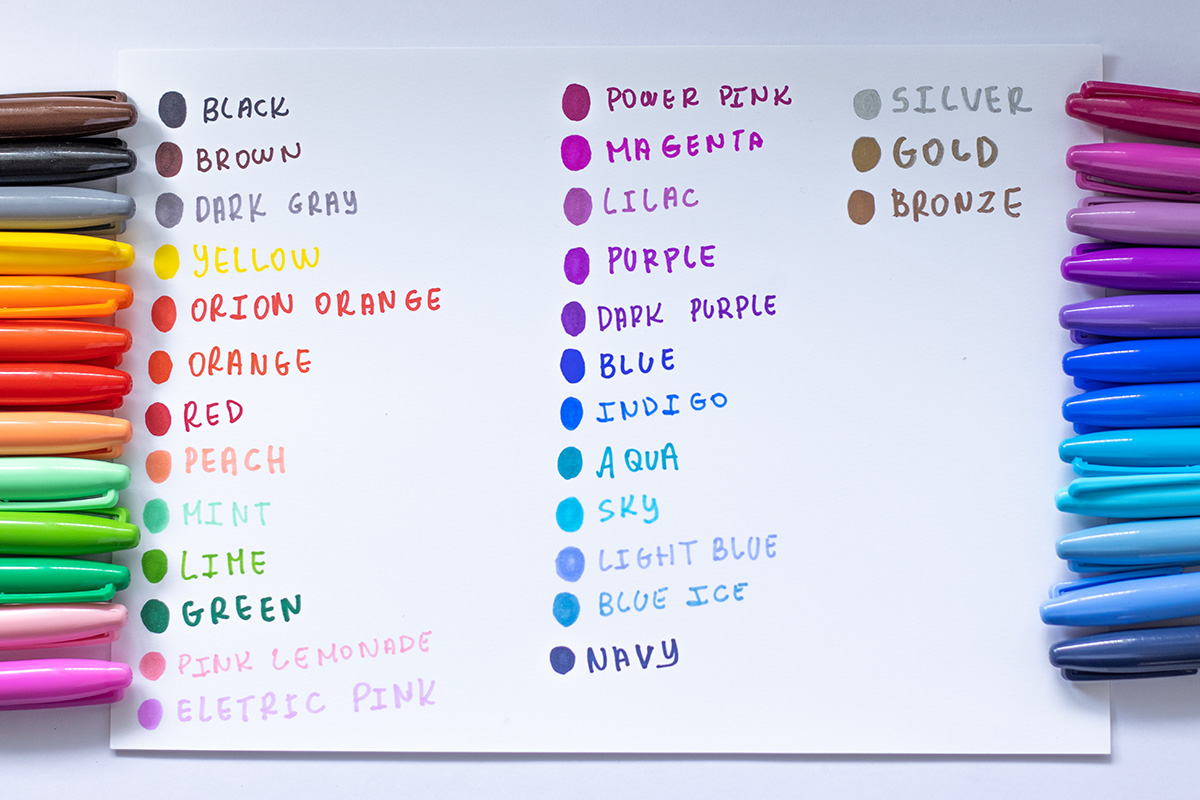 BLACK
BROWN
DARK GRAY
YELLOW
ORION ORANGE
ORANGE
RED
PEACH
MINT
LIME
GREEN
PINK LEMONADE
ELETRIC PINK
POWER PINK
MAGENTA
LILAC
PURPLE
DARK PURPLE
BLUE
INDIGO
AQUA
SKY
LIGHT BLUE
BLUE ICE
NAVY
SILVER
GOLD
BRONZE